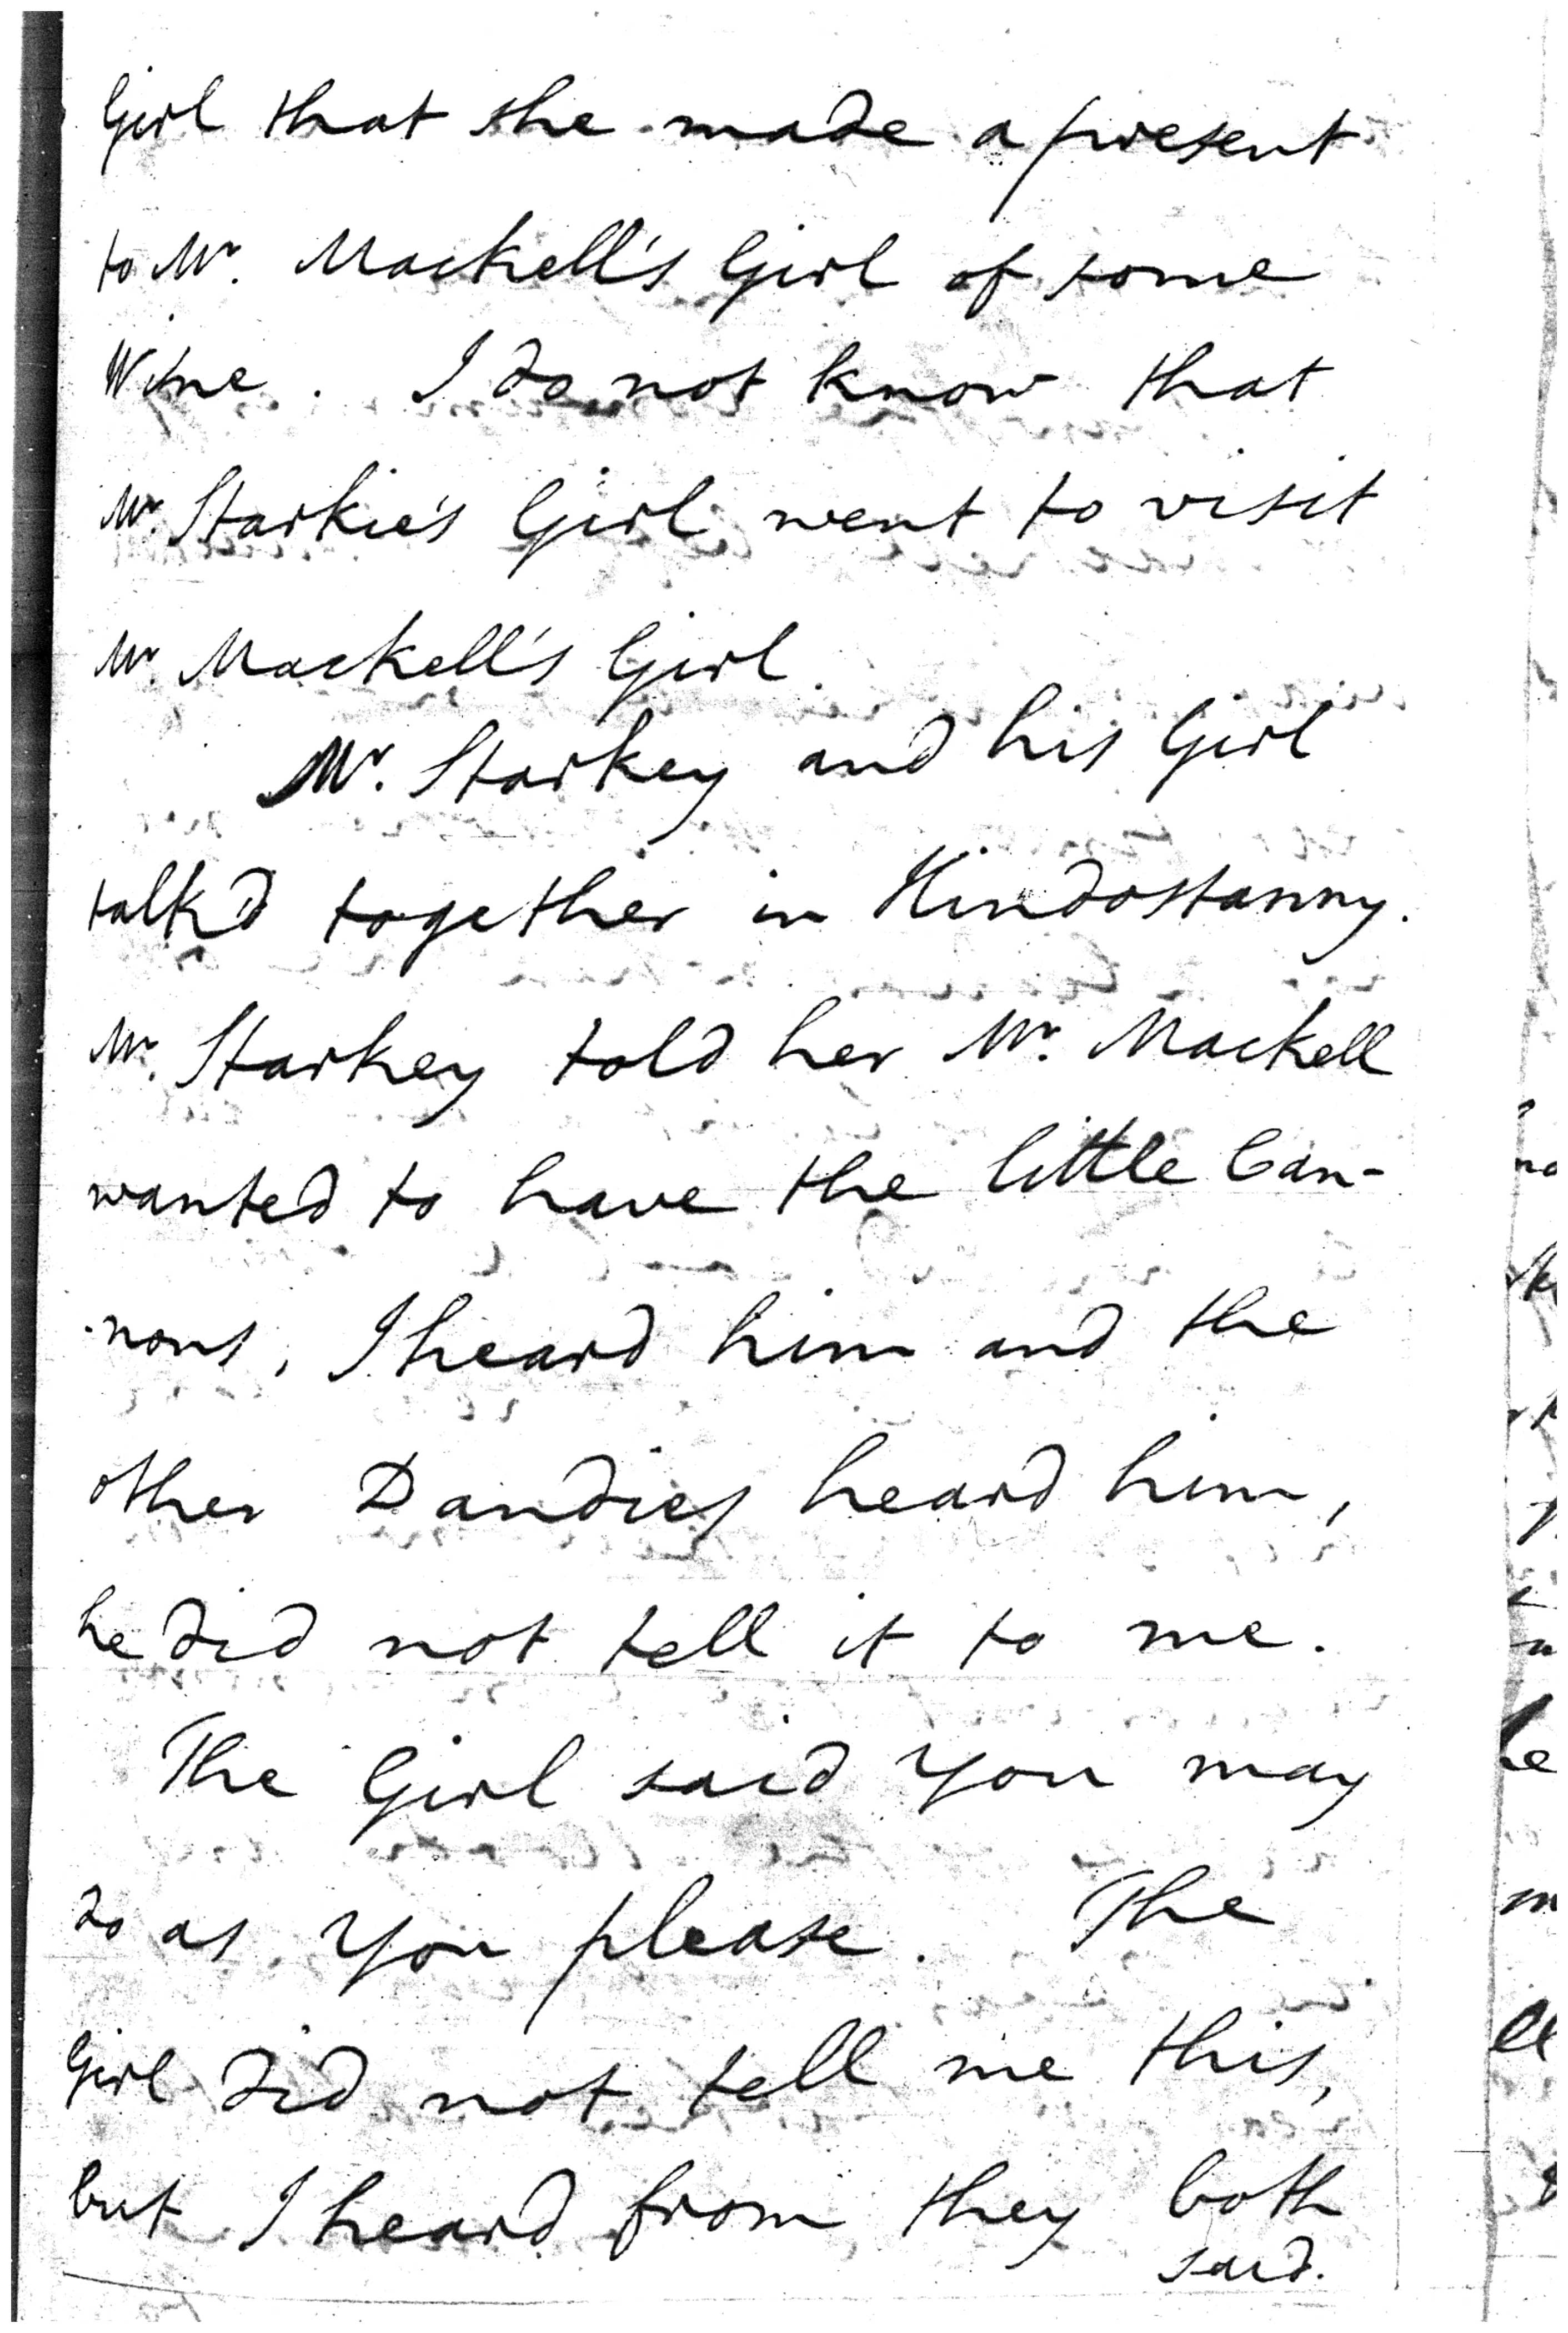 Girl that she made a present
to Mr. Mackell's Girl of some
Wine. I do not know that
Mr. Starkie's Girl went to visit
Mr. Mackell's Girl.
Mr. Starkey and his Girl
talk'd together in Hindostanny.
Mr. Starkey told her Mr. Mackell
wanted to have the little Can-
nons, I heard him and the
other Dandies heard him,
he did not tell it to me.
The Girl said you may
do as you please. The
Girl did not tell me this,
but I heard from they both
said.